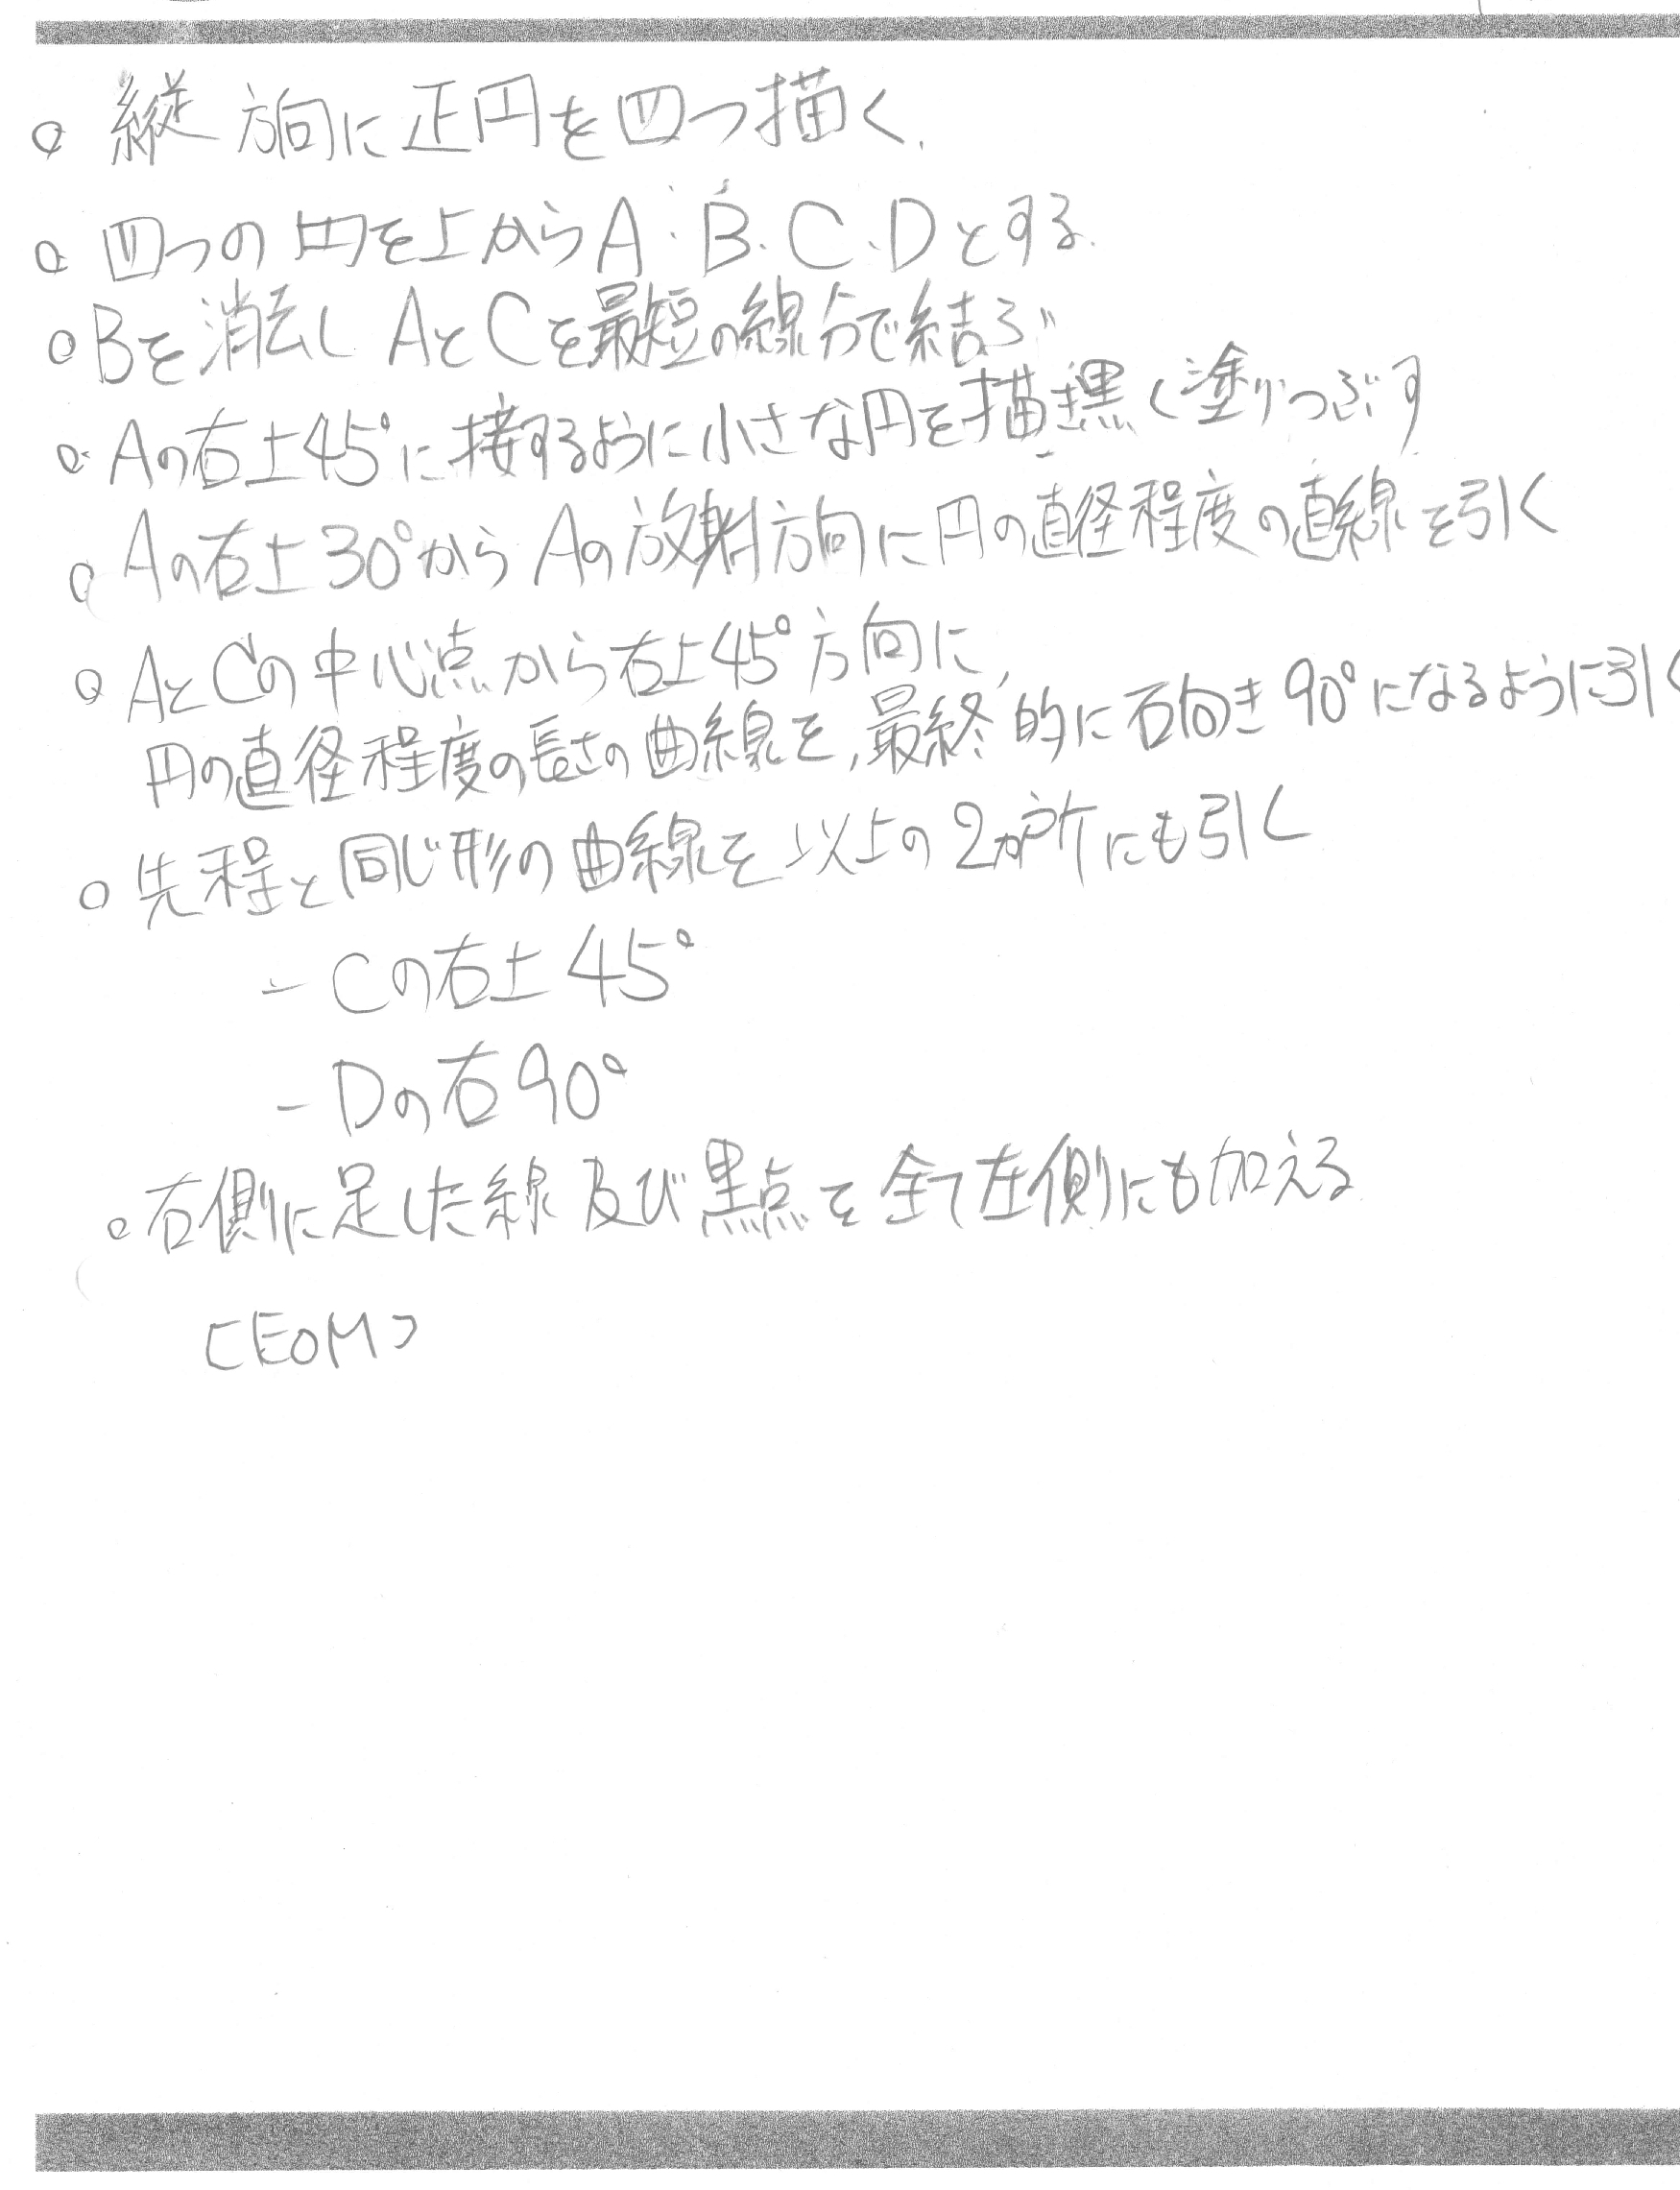 ○ 縦方向に正円を四つ描く.
○ 四つの円を上からA.B.C.Dとする.
○ Bを消去しAとCを最短の線分で結ぶ
○ Aの右上45°に接するように小さな円を描き黒く塗りつぶす
○ Aの右上30°からAの放射方向に円の直径程度の直線を引く
○ AとCの中心点から右上45°方向に,
円の直径程度の長さの曲線を,最終的に右向き90°になるように引く
○ 先程と同じ形の曲線を以上の2か所にも引く
- Cの右上45°
- Dの右90°
○ 右側に足した線及び黒点を全て左側にも加える
[EOM]